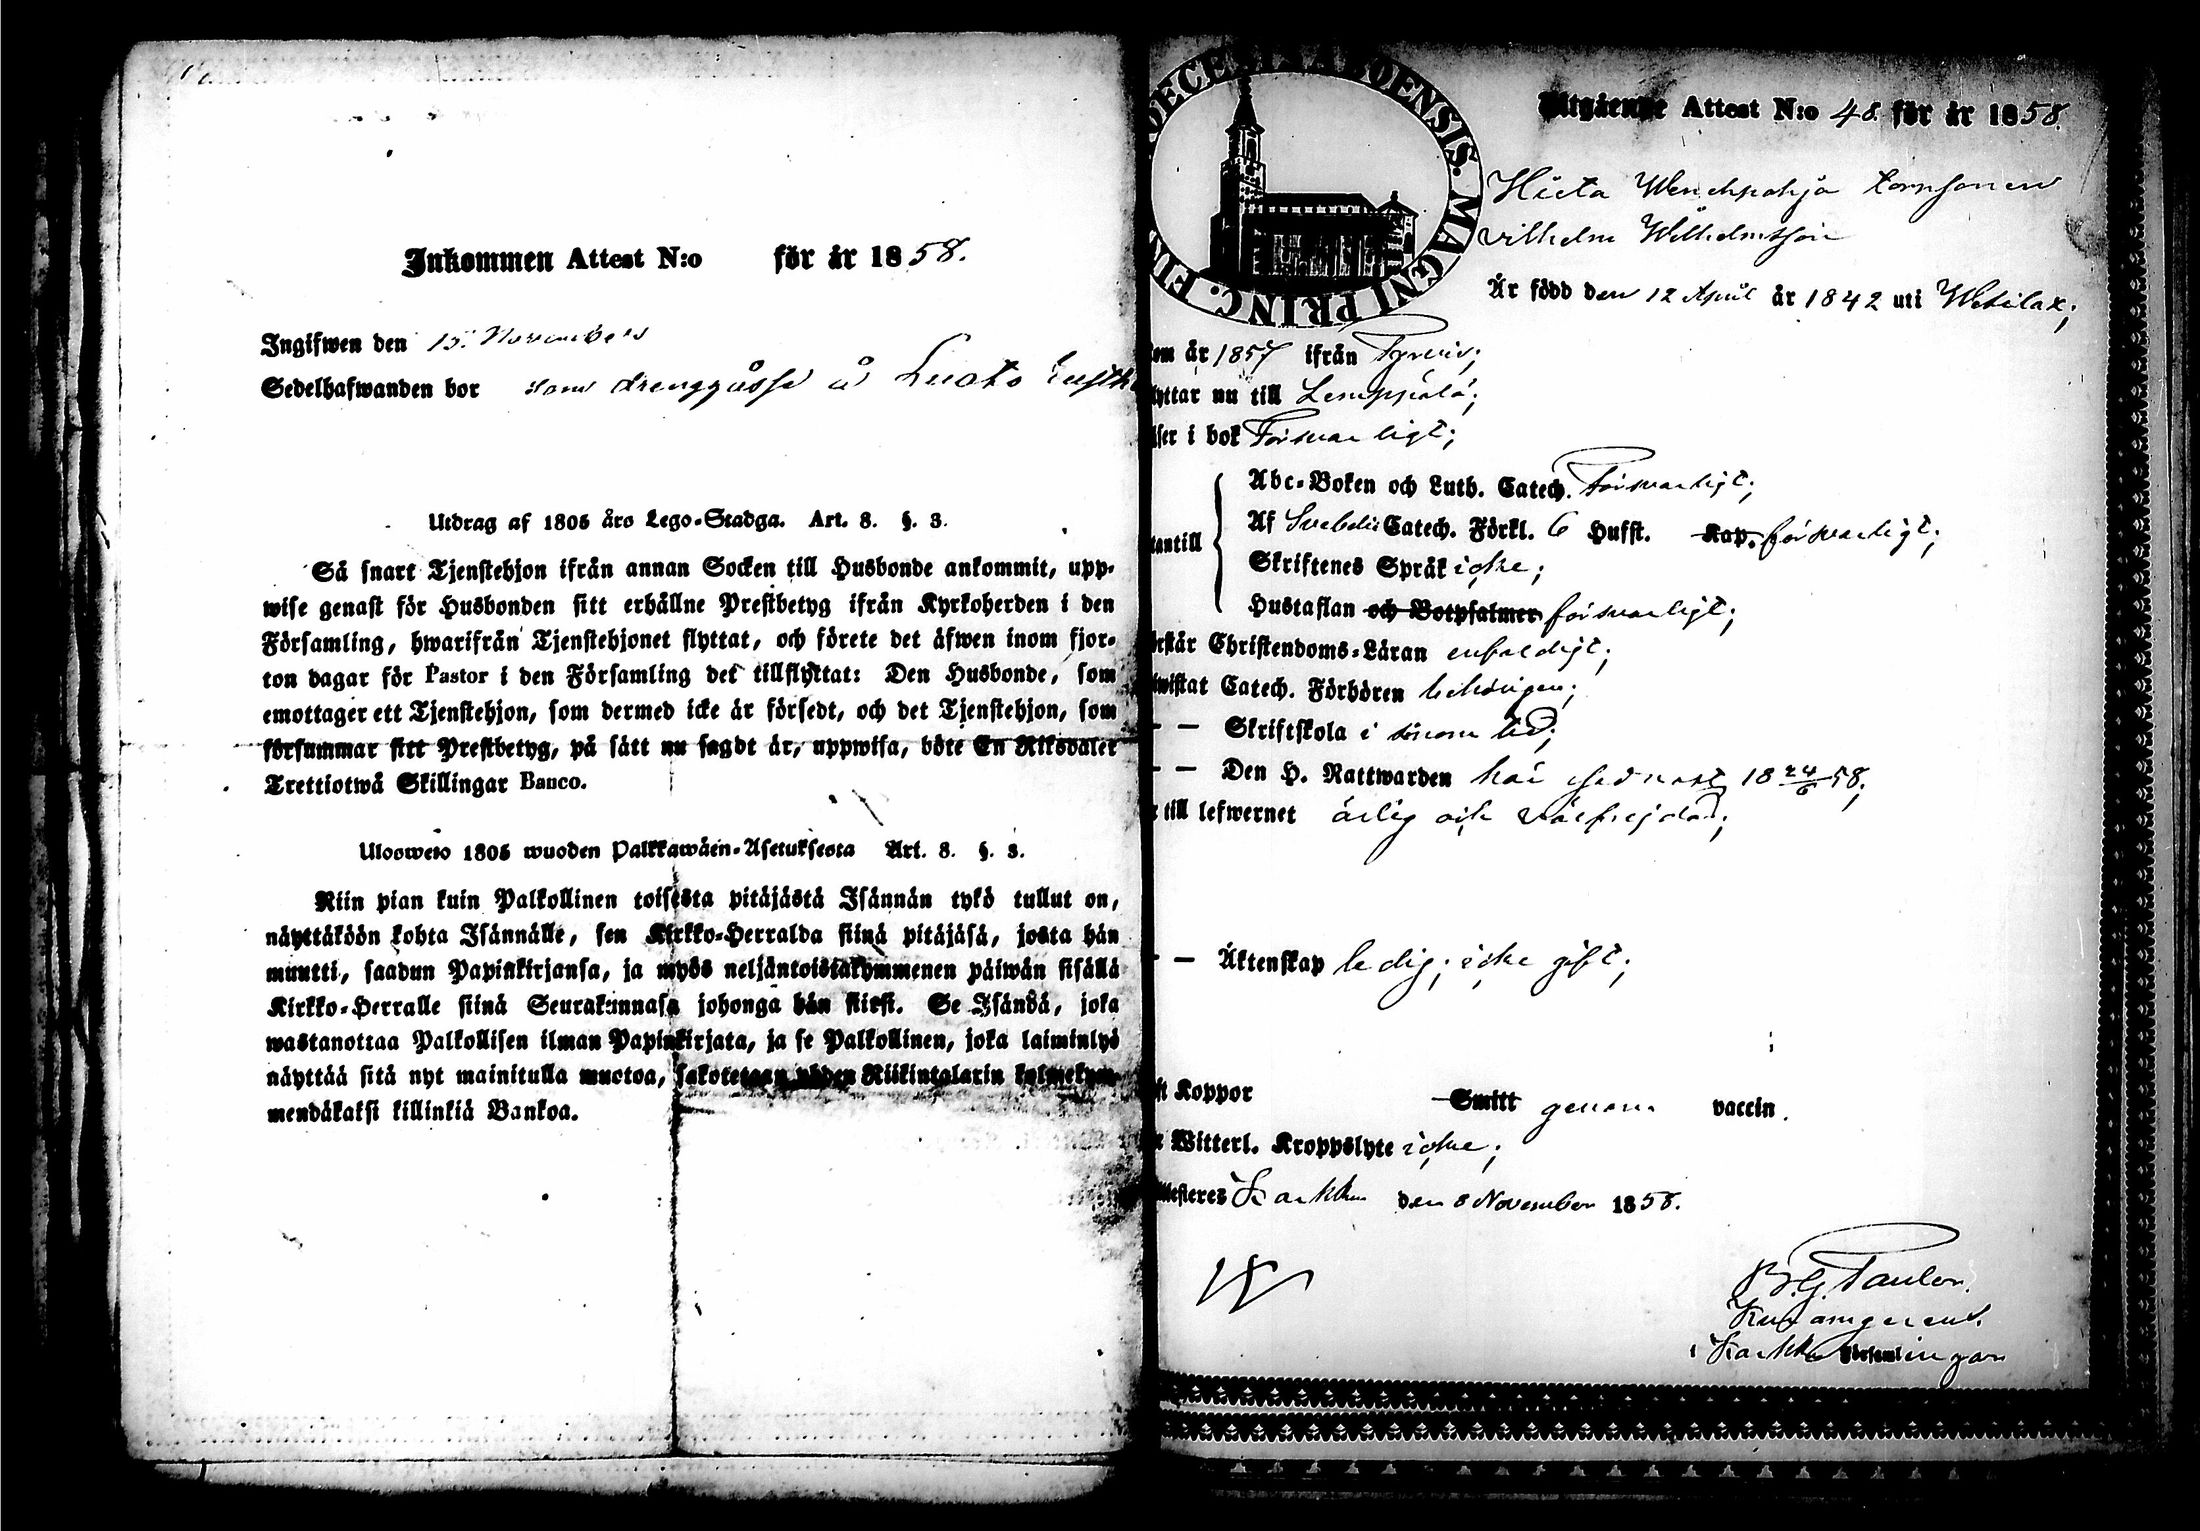 Inkommen Attest N:o för år 1858.
Ingifwen den 15. Novembers
Sedelhafwanden bor som drenggåsse å
Utdrag af 1805 års Lego-Stadga. Art. 8. §. 3.
Så snart Tjenstehjon ifrån annan Socken till Husbonde ankommit, upp-
wise genast för Husbonden sitt erhållne Prestbetyg ifrån Kyrkoherden i den
Församling, hwarifrån Tjenstehjonet flyttat, och förete det äfwen inom fjor-
ton dagar för Pastor i den Församling det tillflyttat: Den Husbonde, som
emottager ett Tjenstehjon, som dermed icke är försedt, och det Tjenstehjon, som
försummar sitt Prestbetyg, på sätt nu sagdt är, uppwisa, böte En Riksdaler
Trettiotwå Skillingar Banco.
Ulosweto 1805 wuoden Palkkawäen-Asetuksesta Art. 8. §. 3.
Niin pian kuin Palkollinen toisesta pitäjästä Isännän tykö tullut on,
näyttäköön kohta Isännälle, sen Kirkko-Herralda siinä pitäjäsä, josta hän
muutti, saadun Papinkirjansa, ja myös neljäntoistakymmenen päiwän sisällä
Kirkko-Herralle siinä Seurakunnasa johonga hän siirsi. Se Isändä, joka
wastanottaa Palkollisen ilman Papinkirjata, ja se Palkollinen, joka laiminlyö
näyttää sitä nyt mainitulla muotoa, sakotetaan yhden Riikintalarin kolmekym-
mendäkaksi killinkiä Bankoa.
DECE ABOENSIS. MAGNI PRINC. FIN
Utgående Attest N:o 48. för år 1858.
Hieta
Vilhelm Wilhelmsson
Är född den 12 April år 1842 uti Wesilax;
om år 1857 ifrån Tyrvis;
lyttar nu till Lemppälä;
äser i bok Försvarligt;
tantill
Abc-Boken och Luth. Catech. Försvarligt;
Af Svebelii Catech. Förkl. 6 Hufst. Kap. försvarligt;
Skriftenes Språk icke;
Hustaflan och Botpsalmer försvarligt;
örstår Christendoms-Läran enfaldigt;
iwistat Catech. Förhören behörigen;
— — Skriftskola i sinom tid;
— — Den H. Nattwarden här sednast 18 24/6 58;
r till lefwernet ärlig och välfrejdad;
— — Äktenskap ledig; icke gift;
ft Koppor Smitt genom vaccin.
r Witterl. Kroppslyte icke;
ttesteres Karkku den 8 November 1858.
i Karkku Församlingar